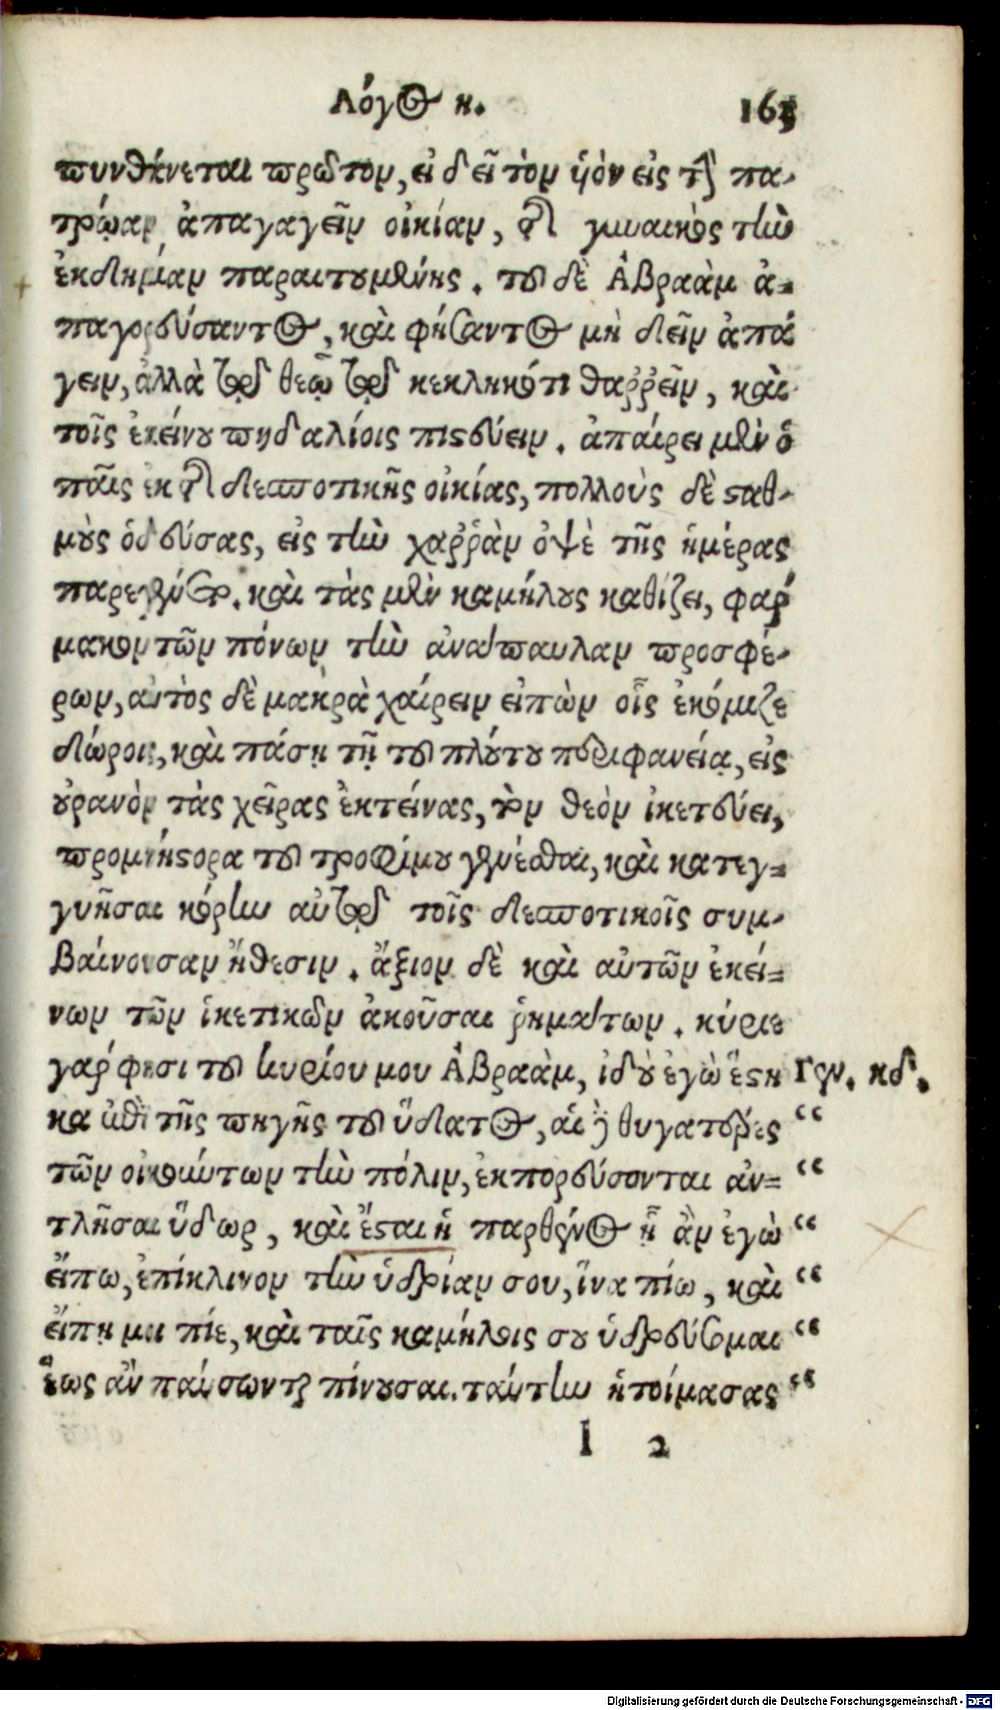 Λόγος η. 163
πυνθάνεται πρῶτον, εἰ δεῖ τὸν ὑὸν εἰς τὴν πα-
τρῴαν ἀπαγαγεῖν οἰκίαν, τῆς γυναικὸς τὴν
ἐκδημίαν παραιτουμένης. τοῦ δὲ Ἀβραὰμ ἀ-
παγορεύσαντος, καὶ φήσαντος μὴ δεῖν ἀπά
γειν, ἀλλὰ τῷ θεῷ τῷ κεκληκότι θαῤῥεῖν, καὶ
τοῖς ἐκείνου πηδαλίοις πιστεύειν. ἀπαίρει μὲν ὁ
παῖς ἐκ τῆς δεσποτικῆς οἰκίας, πολλοὺς δὲ σταθ-
μοὺς ὁδεύσας, εἰς τὴν χαῤῥὰν ὀψὲ τῆς ἡμέρας
παρεγένετο. καὶ τὰς μὲν καμήλους καθίζει, φάρ
μακον τῶν πόνων τὴν ἀνάπαυλαν προσφέ-
ρων, αὐτὸς δὲ μακρὰ χαίρειν εἰπὼν οἷς ἐκόμιζε
δώροις, καὶ πάσῃ τῇ τοῦ πλούτου περιφανείᾳ, εἰς
οὐρανὸν τὰς χεῖρας ἐκτείνας, τὸν θεὸν ἱκετεύει,
προμνήστορα τοῦ τροφίμου γενέσθαι, καὶ κατεγ-
γυῆσαι κόρην αὐτῷ τοῖς δεσποτικοῖς συμ-
βαίνουσαν ἤθεσιν. ἄξιον δὲ καὶ αὐτῶν ἐκεί-
νων τῶν ἱκετικῶν ἀκοῦσαι ῥημάτων. κύριε
γάρ φησι τοῦ κυρίου μου Ἀβραὰμ, ἰδοὺ ἐγὼ ἕστη Γεν. κδ.
κα ἐπὶ τῆς πηγῆς τοῦ ὕδατος, αἱ δὲ θυγατέρες “
τῶν οἰκούντων τὴν πόλιν, ἐκπορεύσονται ἀν- “
τλῆσαι ὕδωρ, καὶ ἔσται ἡ παρθένος ᾗ ἂν ἐγὼ “
εἴπω, ἐπίκλινον τὴν ὑδρίαν σου, ἵνα πίω, καὶ “
εἴπῃ μοι πίε, καὶ ταῖς καμήλοις σου ὑδρεύσομαι “
ἕως ἂν παύσωνται πίνουσαι. ταύτην ἡτοίμασας “
l 2
Digitalisierung gefördert durch die Deutsche Forschungsgemeinschaft - DFG